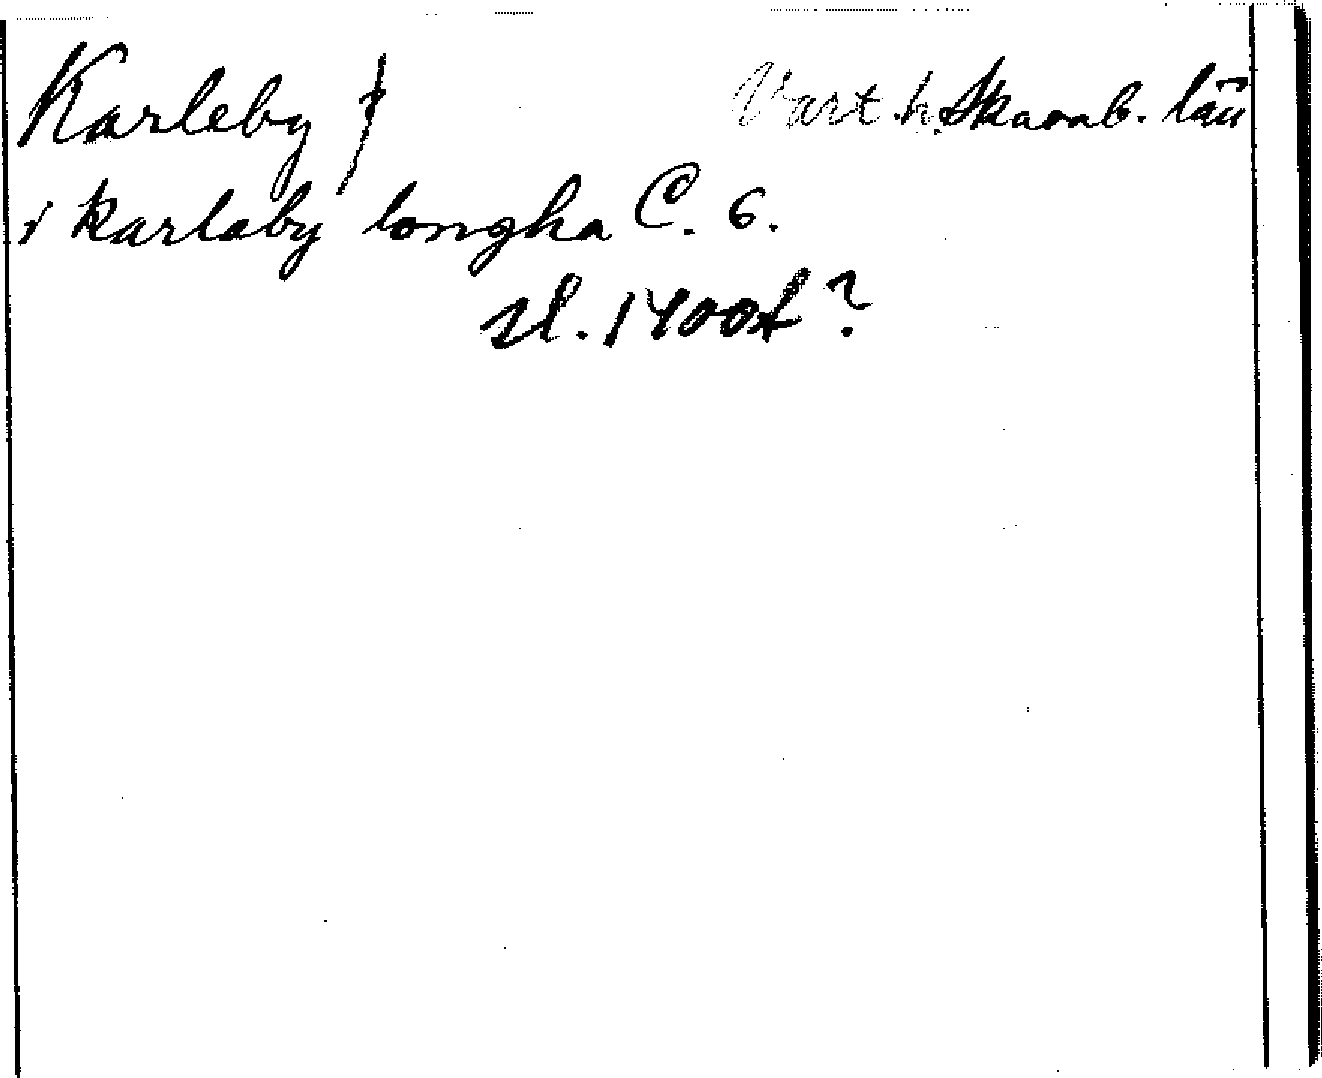 Karleby f Vart. h. Skarab. län
i karlaby longha C. 6.
sl. 1400t?